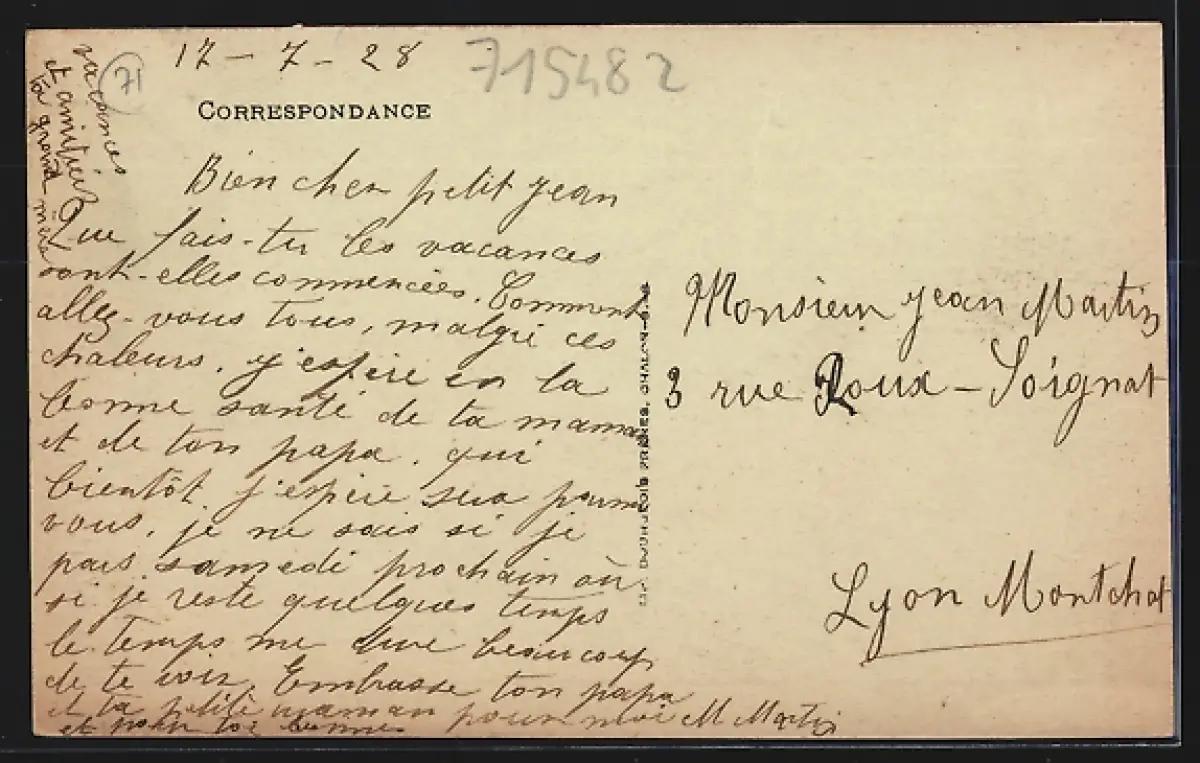 12 - 7 - 28
715482
71
CORRESPONDANCE
Bien cher petit Jean
Que fais-tu les vacances
sont-elles commencées. Comment
allez-vous tous, malgré ces
chaleurs, j'espère en la
bonne santé de ta maman
et de ton papa. qui
bientôt j'espère sera parmi
vous. je ne sais si je
pars samedi prochain où
si je reste quelques temps
le temps me dure beaucoup
de te voir. Embrasse ton papa
et ta petite maman pour moi M Martin
et pour toi bonnes
vacances
et amitiés
ta grand mère
Monsieur Jean Martin
3 rue Roux-Soignat
Lyon Montchat